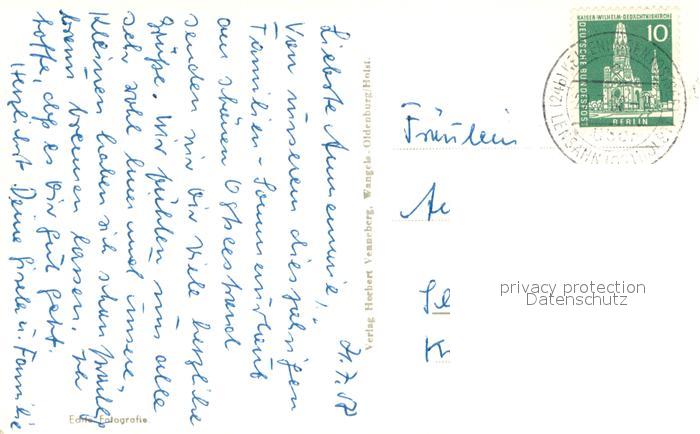 Liebste Annemarie!
Von unserem diesjährigen
Familien-Sommerurlaub
am schönen Ostseestrand
senden wir Dir viele herzliche
Grüße. Wir fühlen uns alle
sehr wohl hier und unsere
Kleinen haben sich schon prächtig
braun brennen lassen. Ich
hoffe, daß es Dir gut geht.
Herzlichst Deine Gisela u. Familie
Echte Fotografie
Verlag Herbert Venneberg, Wangels-Oldenburg/Holst.
Fräulein
privacy protection
Datenschutz
KAISER-WILHELM-GEDÄCHTNISKIRCHE
10
DEUTSCHE BUNDESPOST
BERLIN
LENSAHN